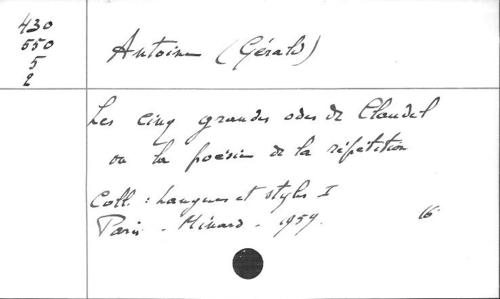 430
550
5
2
Antoine (Gérald)
Les cinq grandes odes de Claudel
ou la poésie de la répétition
Coll. : Langues et styles I
Paris - Minard - 1959.
16